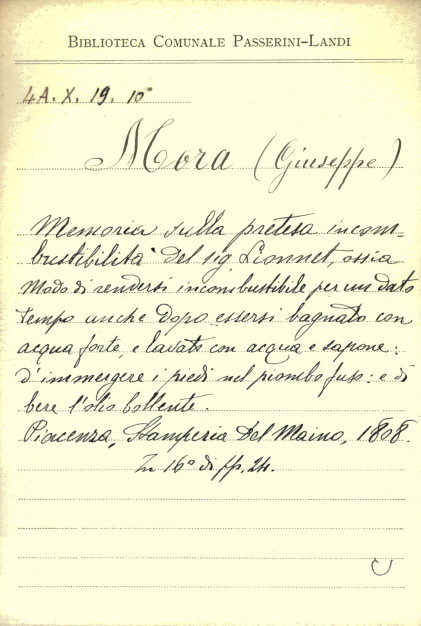 BIBLIOTECA COMUNALE PASSERINI-LANDI
4A. X. 19. 10°
Mora (Giuseppe)
Memoria sulla pretesa incom-
bustibilità del sig Lionnet, ossia
Modo di rendersi incombustibile per un dato
tempo anche dopo essersi bagnato con
acqua forte, e lavato con acqua e sapone:
d'immergere i piedi nel piombo fuso: e di
bere l'olio bollente.
Piacenza, Stamperia Del Maino, 1808.
In 16° di pp. 24.